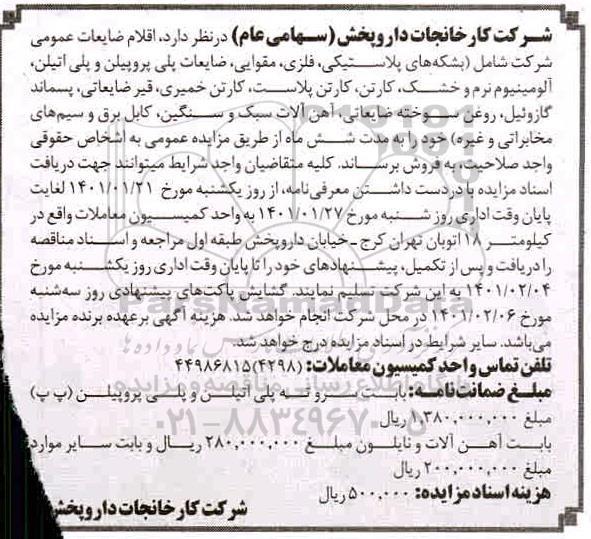 شرکت کارخانجات داروپخش (سهامی عام) درنظر دارد، اقلام ضایعات عمومی
شرکت شامل (بشکه‌های پلاستیکی، فلزی، مقوایی، ضایعات پلی پروپیلن و پلی اتیلن،
آلومینیوم نرم و خشک، کارتن، کارتن پلاست، کارتن خمیری، قیر ضایعاتی، پسماند
گازوئیل، روغن سوخته ضایعاتی، آهن آلات سبک و سنگین، کابل برق و سیم‌های
مخابراتی و غیره) خود را به مدت شش ماه از طریق مزایده عمومی به اشخاص حقوقی
واجد صلاحیت، به فروش برساند. کلیه متقاضیان واجد شرایط میتوانند جهت دریافت
اسناد مزایده با در دست داشتن معرفی‌نامه، از روز یکشنبه مورخ ۱۴۰۱/۰۱/۲۱ لغایت
پایان وقت اداری روز شنبه مورخ ۱۴۰۱/۰۱/۲۷ به واحد کمیسیون معاملات واقع در
کیلومتر ۱۸ اتوبان تهران کرج ـ خیابان داروپخش طبقه اول مراجعه و اسناد مناقصه
را دریافت و پس از تکمیل، پیشنهادهای خود را تا پایان وقت اداری روز یکشنبه مورخ
۱۴۰۱/۰۲/۰۴ به این شرکت تسلیم نمایند. گشایش پاکت‌های پیشنهادی روز سه‌شنبه
مورخ ۱۴۰۱/۰۲/۰۶ در محل شرکت انجام خواهد شد. هزینه آگهی برعهده برنده مزایده
می‌باشد. سایر شرایط در اسناد مزایده درج خواهد شد.
تلفن تماس واحد کمیسیون معاملات: (۴۲۹۸)۴۴۹۸۶۸۱۵
مبلغ ضمانت‌نامه: بابت سرو ته پلی اتیلن و پلی پروپیلن (پ پ)
مبلغ ۱,۳۸۰,۰۰۰,۰۰۰ ریال
بابت آهن آلات و نایلون مبلغ ۲۸۰,۰۰۰,۰۰۰ ریال و بابت سایر موارد
مبلغ ۲۰۰,۰۰۰,۰۰۰ ریال
هزینه اسناد مزایده: ۵۰۰,۰۰۰ ریال
شرکت کارخانجات داروپخش
ParsNamadData
۰۲۱-۸۸۳۴۹۶۷۰-۵